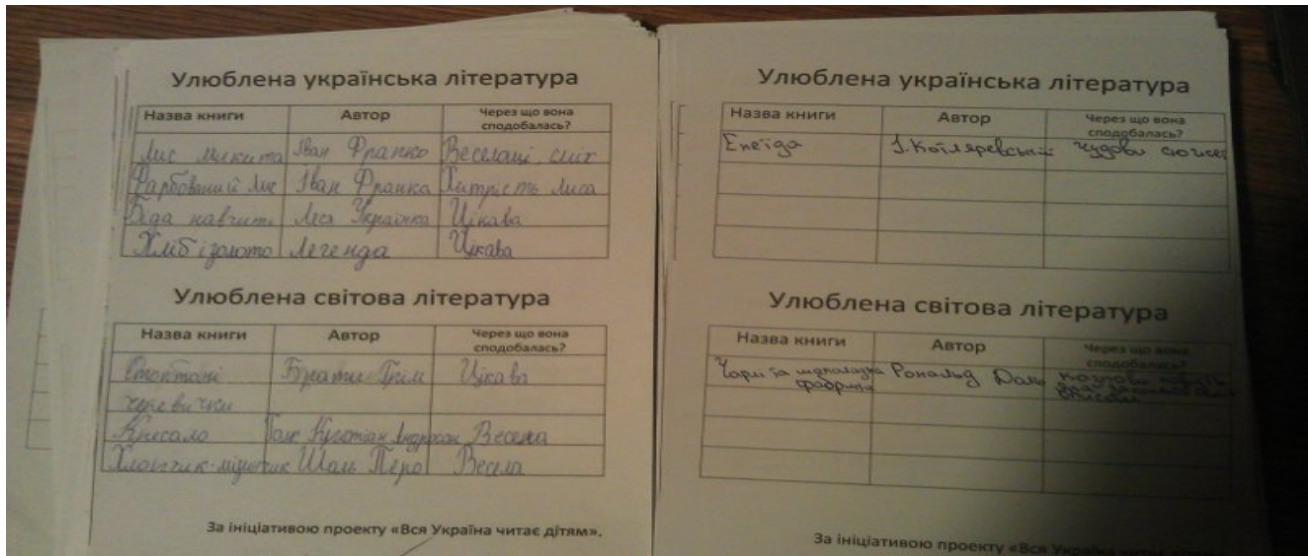 Улюблена українська література
Назва книги Автор Через що вона сподобалась?
Лис Микита Іван Франко Веселощі, сміх
Фарбований Лис Іван Франка Хитрість Лиса
Біда навчить Леся Українка Цікава
Хліб і золото Легенда Цікава
Улюблена світова література
Назва книги Автор Через що вона сподобалась?
Стоптані Брати Грім Цікава
черевички
Кресало Андерсон Весела
Хлопчик-мізинчик Шаль Перо Весела
За ініціативою проекту «Вся Україна читає дітям».
Улюблена українська література
Назва книги Автор Через що вона сподобалась?
Енеїда І. Котляревський чудови
Улюблена світова література
Назва книги Автор Через що вона сподобалась?
та шоколадна Рональд Дал
фабрика
За ініціативою проекту «Вся Україна читає